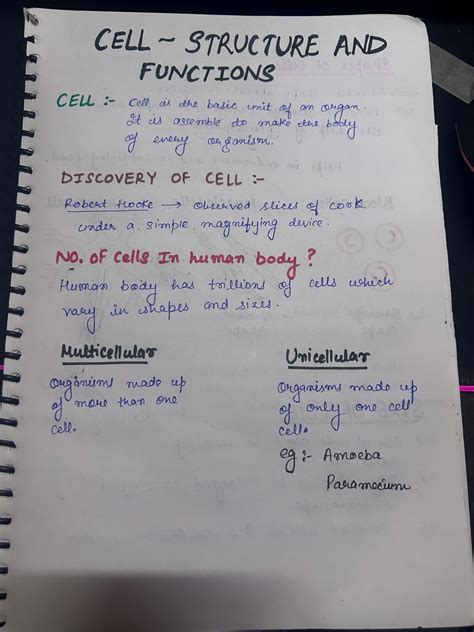 CELL ~ STRUCTURE AND
FUNCTIONS
CELL :- Cell is the basic unit of an organ.
It is assemble to make the body
of every organism.
DISCOVERY OF CELL :-
Robert Hocke → observed slices of cook
under a simple magnifying device.
NO. OF Cells In human body ?
Human body has trillions of cells which
vary in shapes and sizes.
Multicellular
Organisms made up
of more than one
cell.
Unicellular
Organisms made up
of only one cell
cell.
eg :- Amoeba
Paramecium